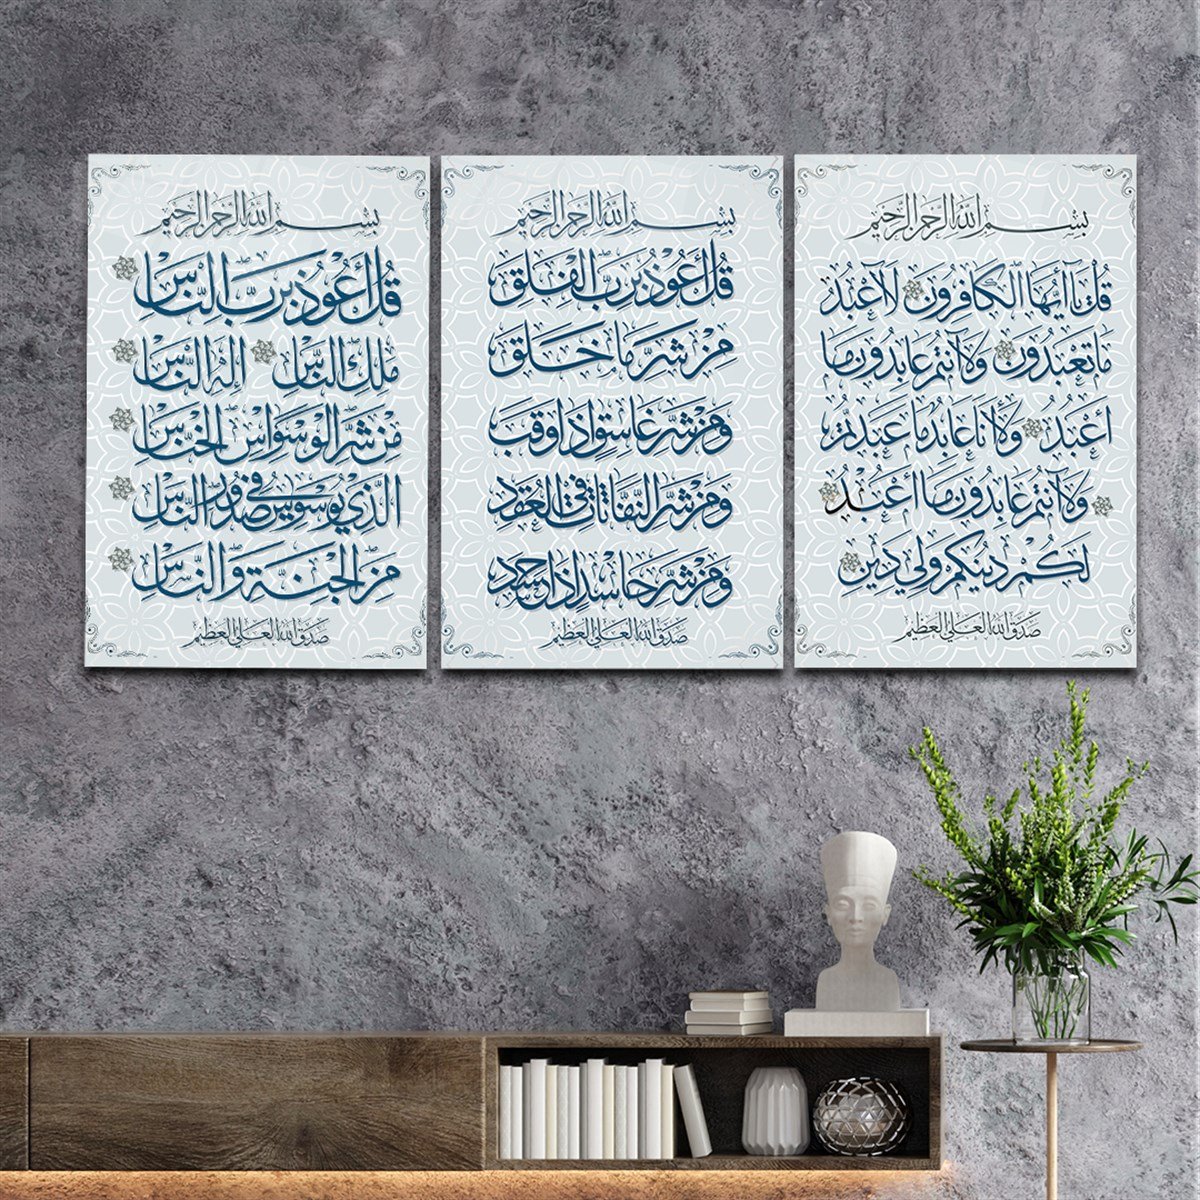 بسم الله الرحمن الرحيم
قل يا أيها الكافرون لا أعبد
ما تعبدون ولا أنتم عابدون ما
أعبد ولا أنا عابد ما عبدتم
ولا أنتم عابدون ما أعبد
لكم دينكم ولي دين
صدق الله العلي العظيم
بسم الله الرحمن الرحيم
قل أعوذ برب الفلق
من شر ما خلق
ومن شر غاسق إذا وقب
ومن شر النفاثات في العقد
ومن شر حاسد إذا حسد
صدق الله العلي العظيم
بسم الله الرحمن الرحيم
قل أعوذ برب الناس
ملك الناس إله الناس
من شر الوسواس الخناس
الذي يوسوس في صدور الناس
من الجنة والناس
صدق الله العلي العظيم